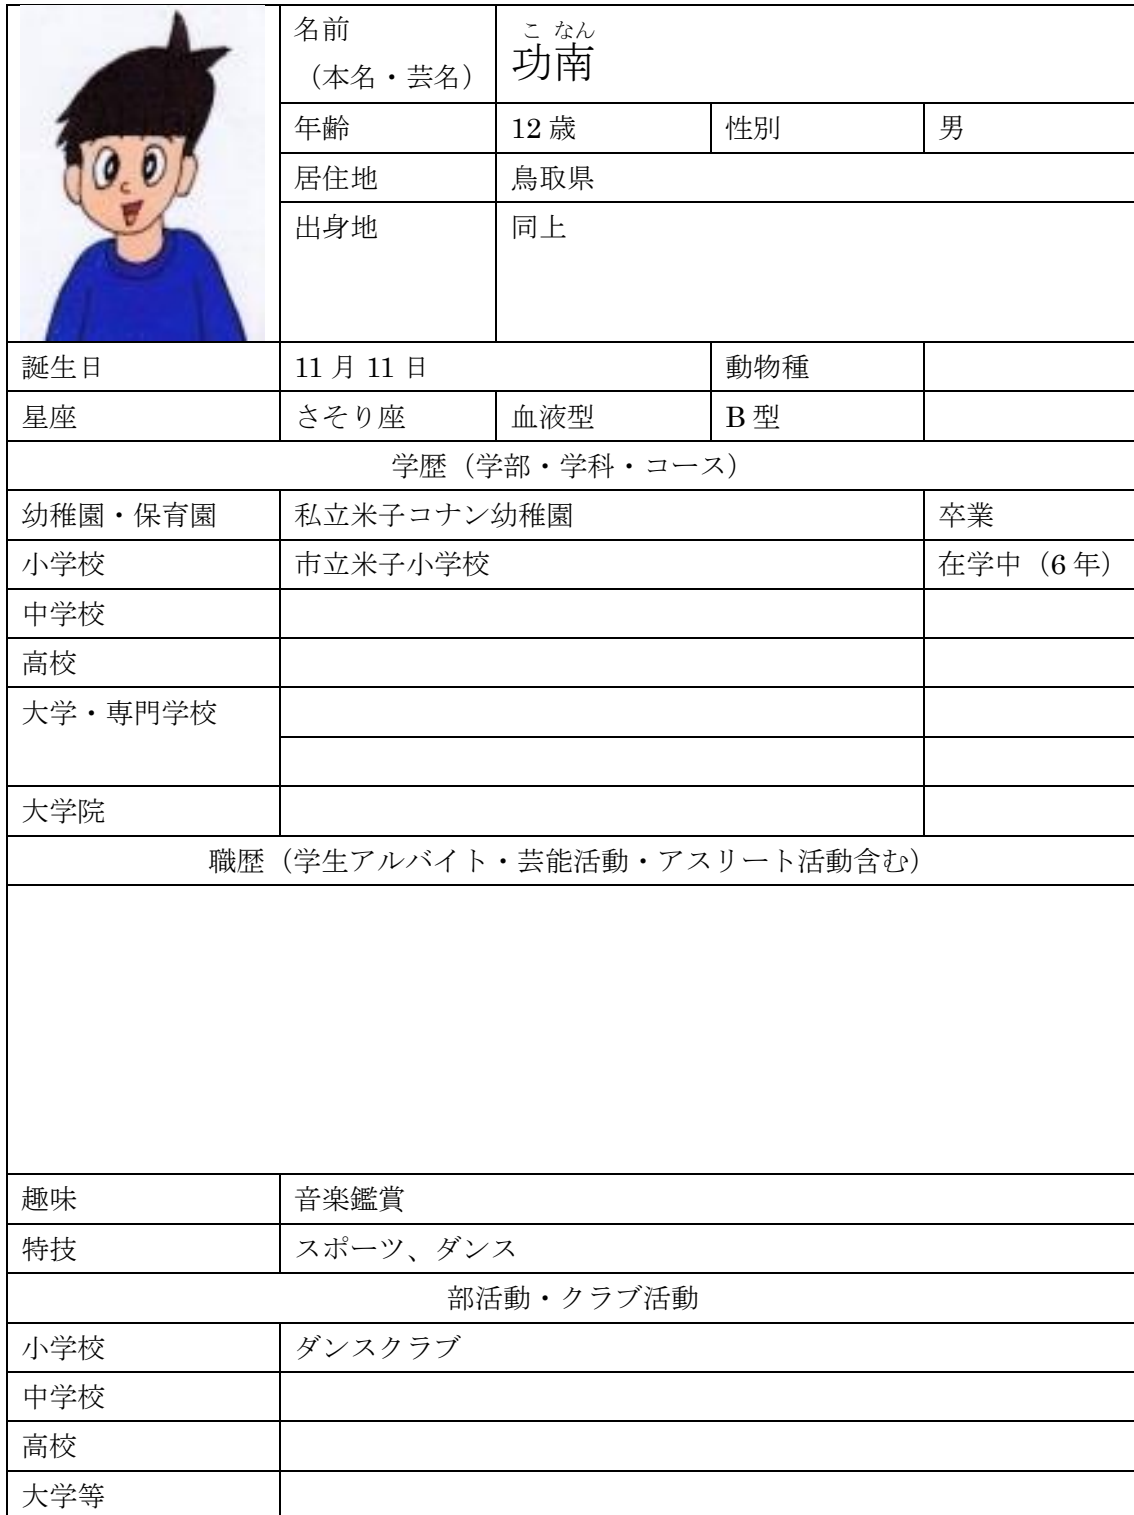 名前
（本名・芸名）
こ なん
功南
年齢 12歳 性別 男
居住地 鳥取県
出身地 同上
誕生日 11月11日 動物種
星座 さそり座 血液型 B型
学歴（学部・学科・コース）
幼稚園・保育園 私立米子コナン幼稚園 卒業
小学校 市立米子小学校 在学中（6年）
中学校
高校
大学・専門学校
大学院
職歴（学生アルバイト・芸能活動・アスリート活動含む）
趣味 音楽鑑賞
特技 スポーツ、ダンス
部活動・クラブ活動
小学校 ダンスクラブ
中学校
高校
大学等